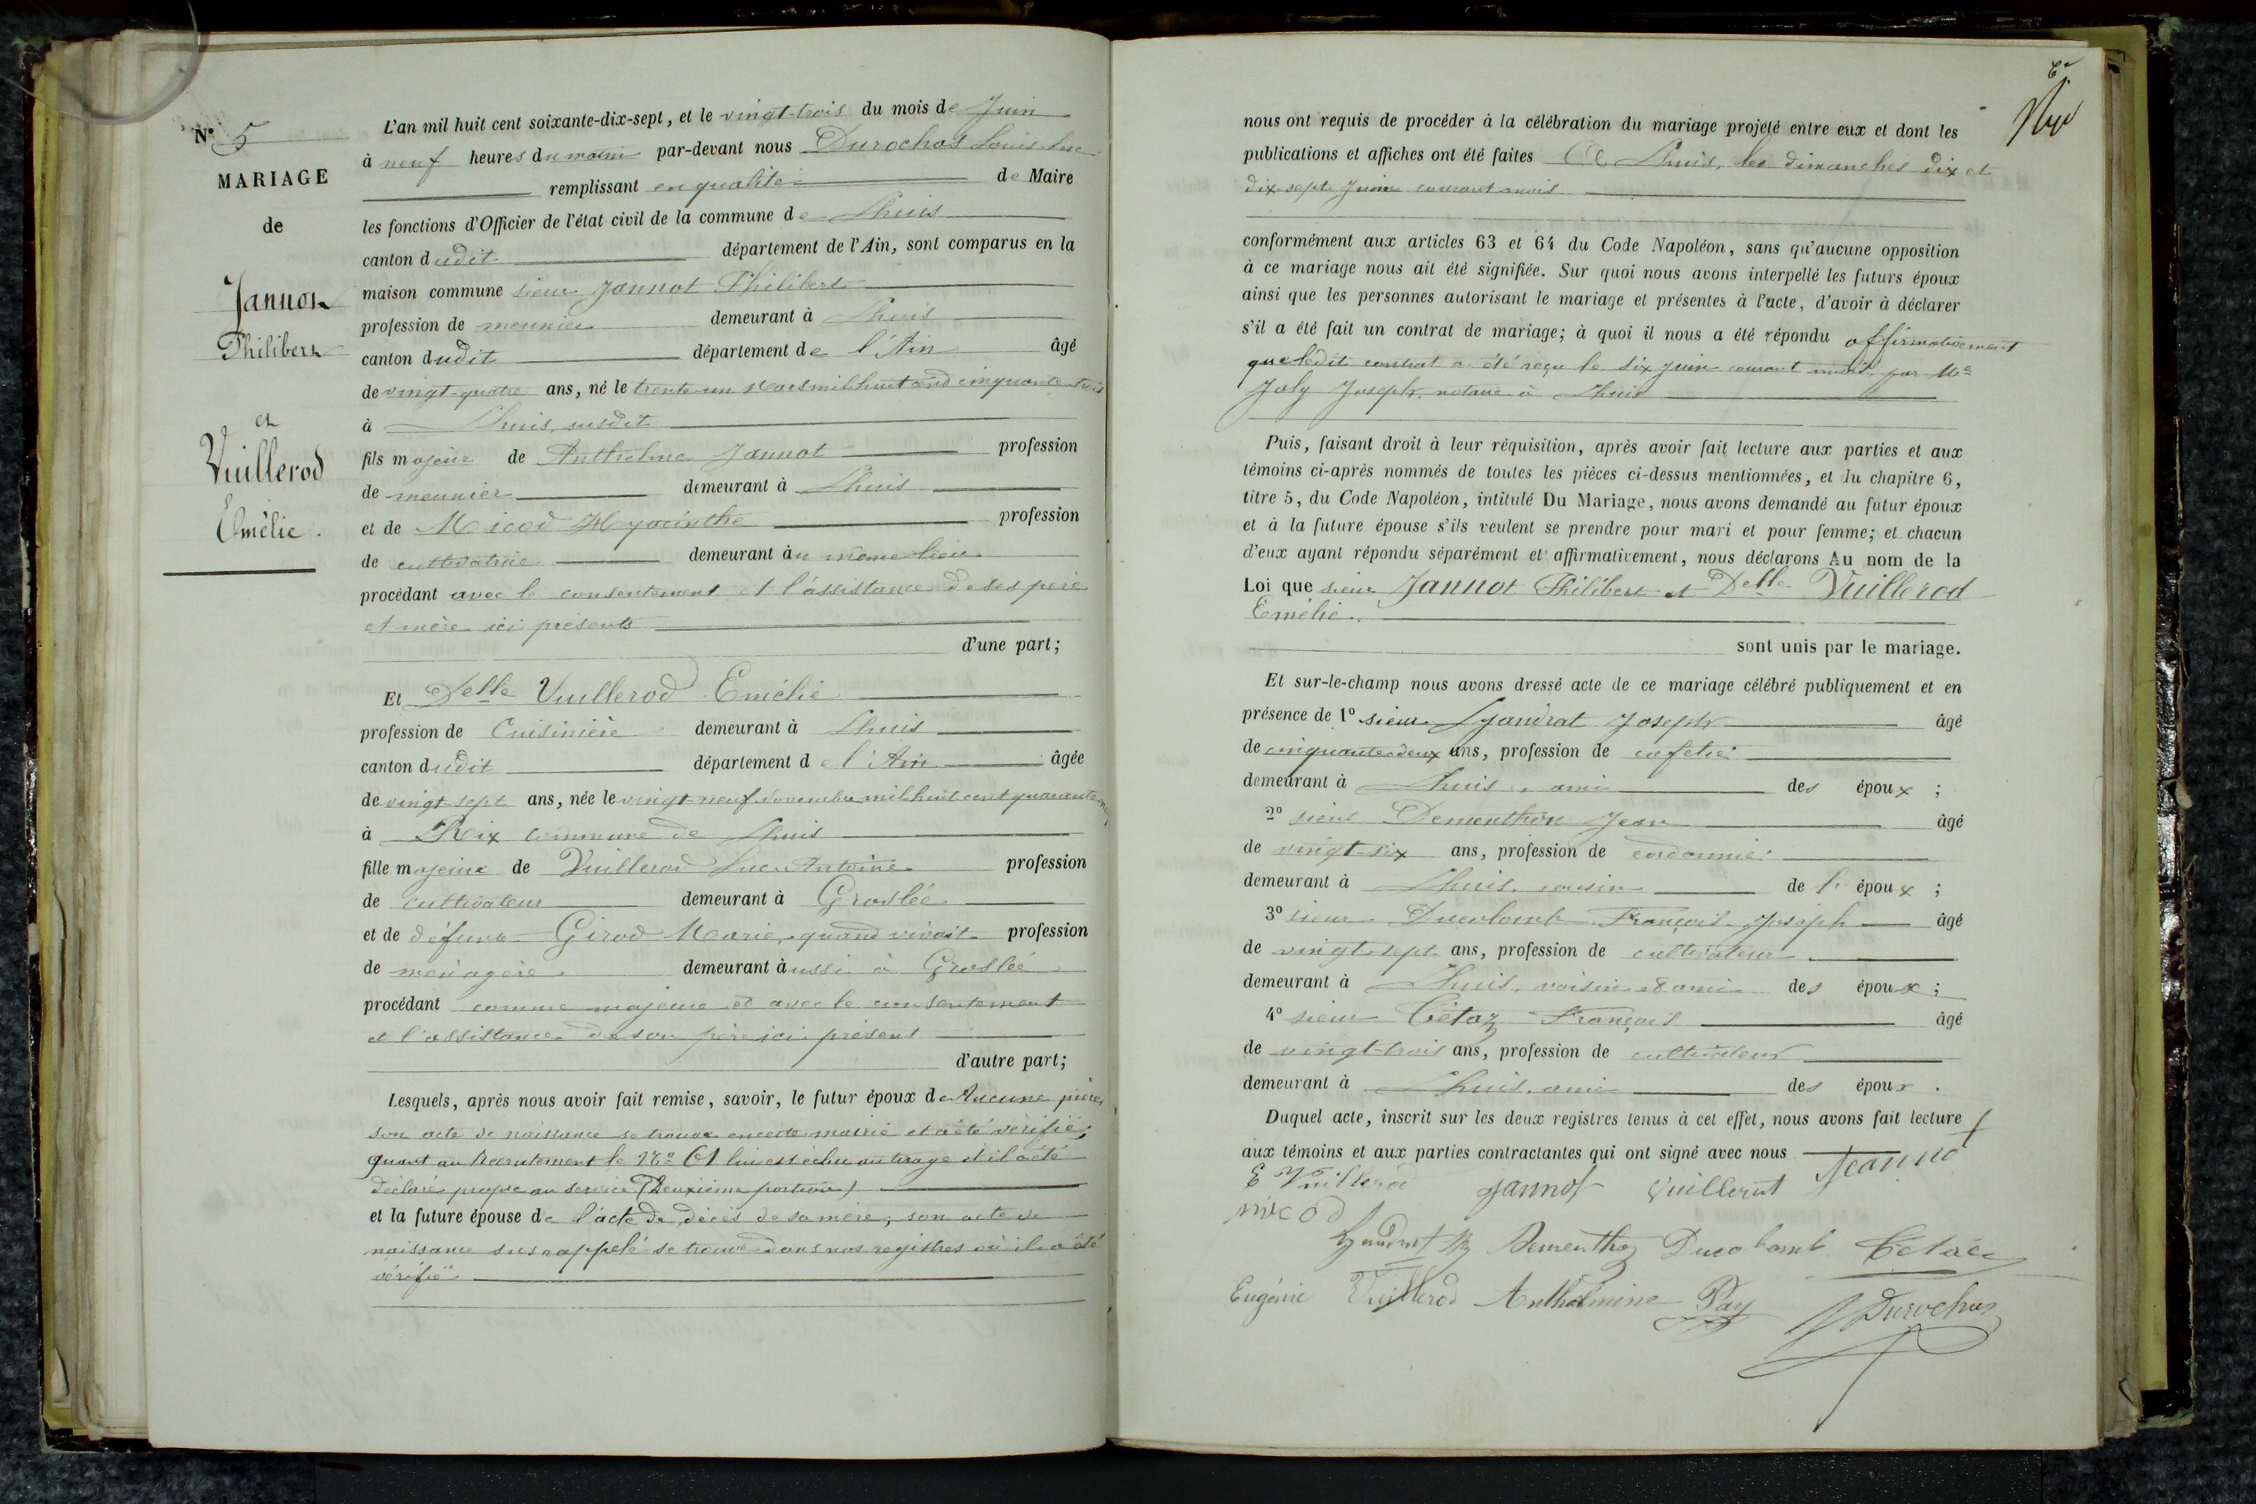 N° 5
MARIAGE
de
Jannot
Philibert
et
Vuillerod
Emélie.
L'an mil huit cent soixante-dix-sept, et le vingt-trois du mois de Juin
à neuf heures du matin par-devant nous Durochat Louis Luc
remplissant en qualité de Maire
les fonctions d'Officier de l'état civil de la commune de Lhuis
canton dudit département de l'Ain, sont comparus en la
maison commune sieur Jannot Philibert
profession de meunier demeurant à Lhuis
canton dudit département de l'Ain âgé
de vingt-quatre ans, né le trente-un Mars mil huit cent cinquante-trois
à Lhuis, susdit
fils majeur de Anthelme Jannot profession
de meunier demeurant à Lhuis
et de Micod Hyacinthe profession
de cultivatrice demeurant au même lieu
procédant avec le consentement et l'assistance de ses père
et mère ici présents
d'une part;
Et Delle Vuillerod Emélie
profession de Cuisinière demeurant à Lhuis
canton dudit département de l'Ain âgée
de vingt-sept ans, née le vingt-neuf Novembre mil huit cent quarante-neuf
à Rix commune de Lhuis
fille majeure de Vuillerod Luc Antoine profession
de cultivateur demeurant à Groslée
et de défunte Girod Marie, quand vivait profession
de ménagère demeurant aussi à Groslée
procédant comme majeure et avec le consentement
et l'assistance de son père ici présent
d'autre part;
Lesquels, après nous avoir fait remise, savoir, le futur époux de Aucune pièces
son acte de naissance se trouve en cette mairie et a été vérifié;
quant au Recrutement le N° 61 lui est échu au tirage et il a été
déclaré propre au service (Deuxième portion)
et la future épouse de l'acte de décès de sa mère; son acte de
naissance sus rappelé se trouve dans nos registres où il a été
vérifié
nous ont requis de procéder à la célébration du mariage projeté entre eux et dont les
publications et affiches ont été faites A Lhuis, les dimanches dix et
dix-sept Juin courant mois
conformément aux articles 63 et 64 du Code Napoléon, sans qu'aucune opposition
à ce mariage nous ait été signifiée. Sur quoi nous avons interpellé les futurs époux
ainsi que les personnes autorisant le mariage et présentes à l'acte, d'avoir à déclarer
s'il a été fait un contrat de mariage; à quoi il nous a été répondu affirmativement
que ledit contrat a été reçu le six juin courant mois par Me
Joly Joseph, notaire à Lhuis
Puis, faisant droit à leur réquisition, après avoir fait lecture aux parties et aux
témoins ci-après nommés de toutes les pièces ci-dessus mentionnées, et du chapitre 6,
titre 5, du Code Napoléon, intitulé Du Mariage, nous avons demandé au futur époux
et à la future épouse s'ils veulent se prendre pour mari et pour femme; et chacun
d'eux ayant répondu séparément et affirmativement, nous déclarons Au nom de la
Loi que sieur Jannot Philibert et Delle Vuillerod
Emélie.
sont unis par le mariage.
Et sur-le-champ nous avons dressé acte de ce mariage célébré publiquement et en
présence de 1° sieur Lyandrat Joseph âgé
de cinquante-deux ans, profession de cafetier
demeurant à Lhuis, ami des époux;
2° sieur Dementhon Jean âgé
de vingt-six ans, profession de cordonnier
demeurant à Lhuis, cousin de l' époux;
3° sieur Ducolomb François-Joseph âgé
de vingt-sept ans, profession de cultivateur
demeurant à Lhuis, voisin & ami des époux;
4° sieur Cétaz François âgé
de vingt-trois ans, profession de cultivateur
demeurant à Lhuis, ami des époux.
Duquel acte, inscrit sur les deux registres tenus à cet effet, nous avons fait lecture
aux témoins et aux parties contractantes qui ont signé avec nous
E Vuillerod Jannot Vuillerod Jeannot
micod
Dementhon Ducolomb
Eugénie Vuillerod Anthelmine Pay Durochat